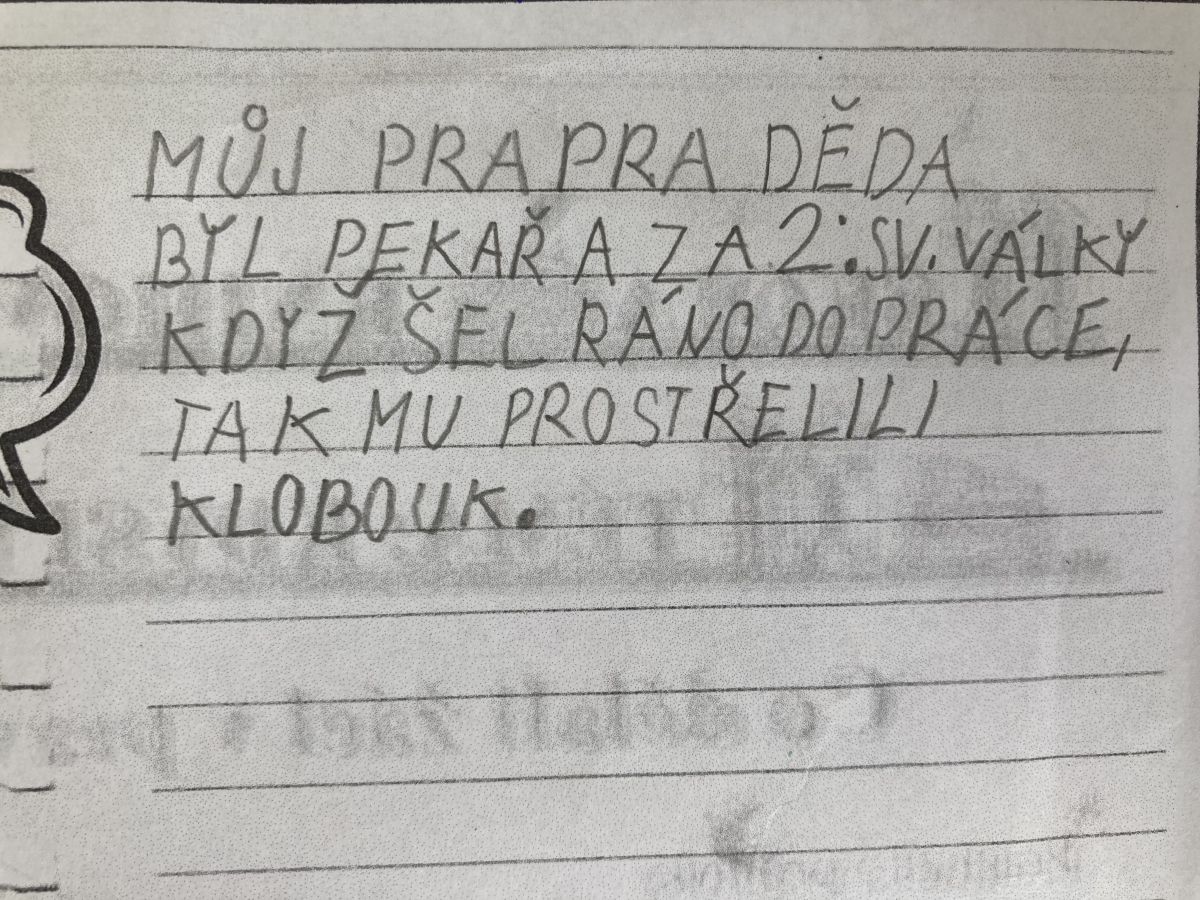 MŮJ PRAPRA DĚDA
BYL PEKAŘ A ZA 2. SV. VÁLKY
KDYŽ ŠEL RÁNO DO PRÁCE,
TAK MU PROSTŘELILI
KLOBOUK.